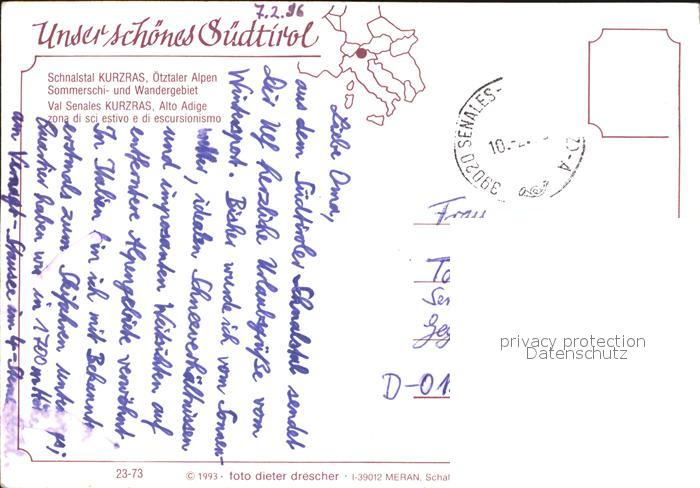 7.2.96
Unser schönes Südtirol
Schnalstal KURZRAS, Ötztaler Alpen
Sommerschi- und Wandergebiet
Val Senales KURZRAS, Alto Adige
zona di sci estivo e di escursionismo
Liebe Oma,
aus dem Südtiroler Schnalstal sendet
Dir herzliche Urlaubsgrüße vom
Wintersport. Bisher wurde ich vom Sonnen-
wetter, idealen Schneeverhältnissen
und imposanten Weitsichten auf
entferntere Alpengebiete verwöhnt.
In Italien bin ich mit Bekannt
erstmals zum Skifahren unter
Quartier haben wir in 1700 m Hö
am Vernagt-Stausee im 4-Sterne
39020 SENALES-
10.-2.
-A
Frau
To
Ser
Geg
D-01
privacy protection
Datenschutz
23-73
© 1993 · foto dieter drescher · I-39012 MERAN, Schaf